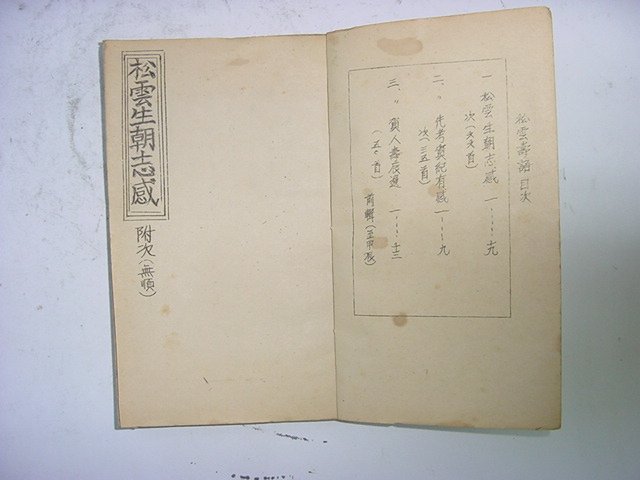 松雲壽語 目次
一 松雲生朝志感 一~~十九
次(六六首)
二、〃 先考實紀有感 一~~九
次(三五首)
三、〃 賓人壽辰選 一~~十三
(五〇首) 前輯(至甲辰)
松雲生朝志感
附次(無順)